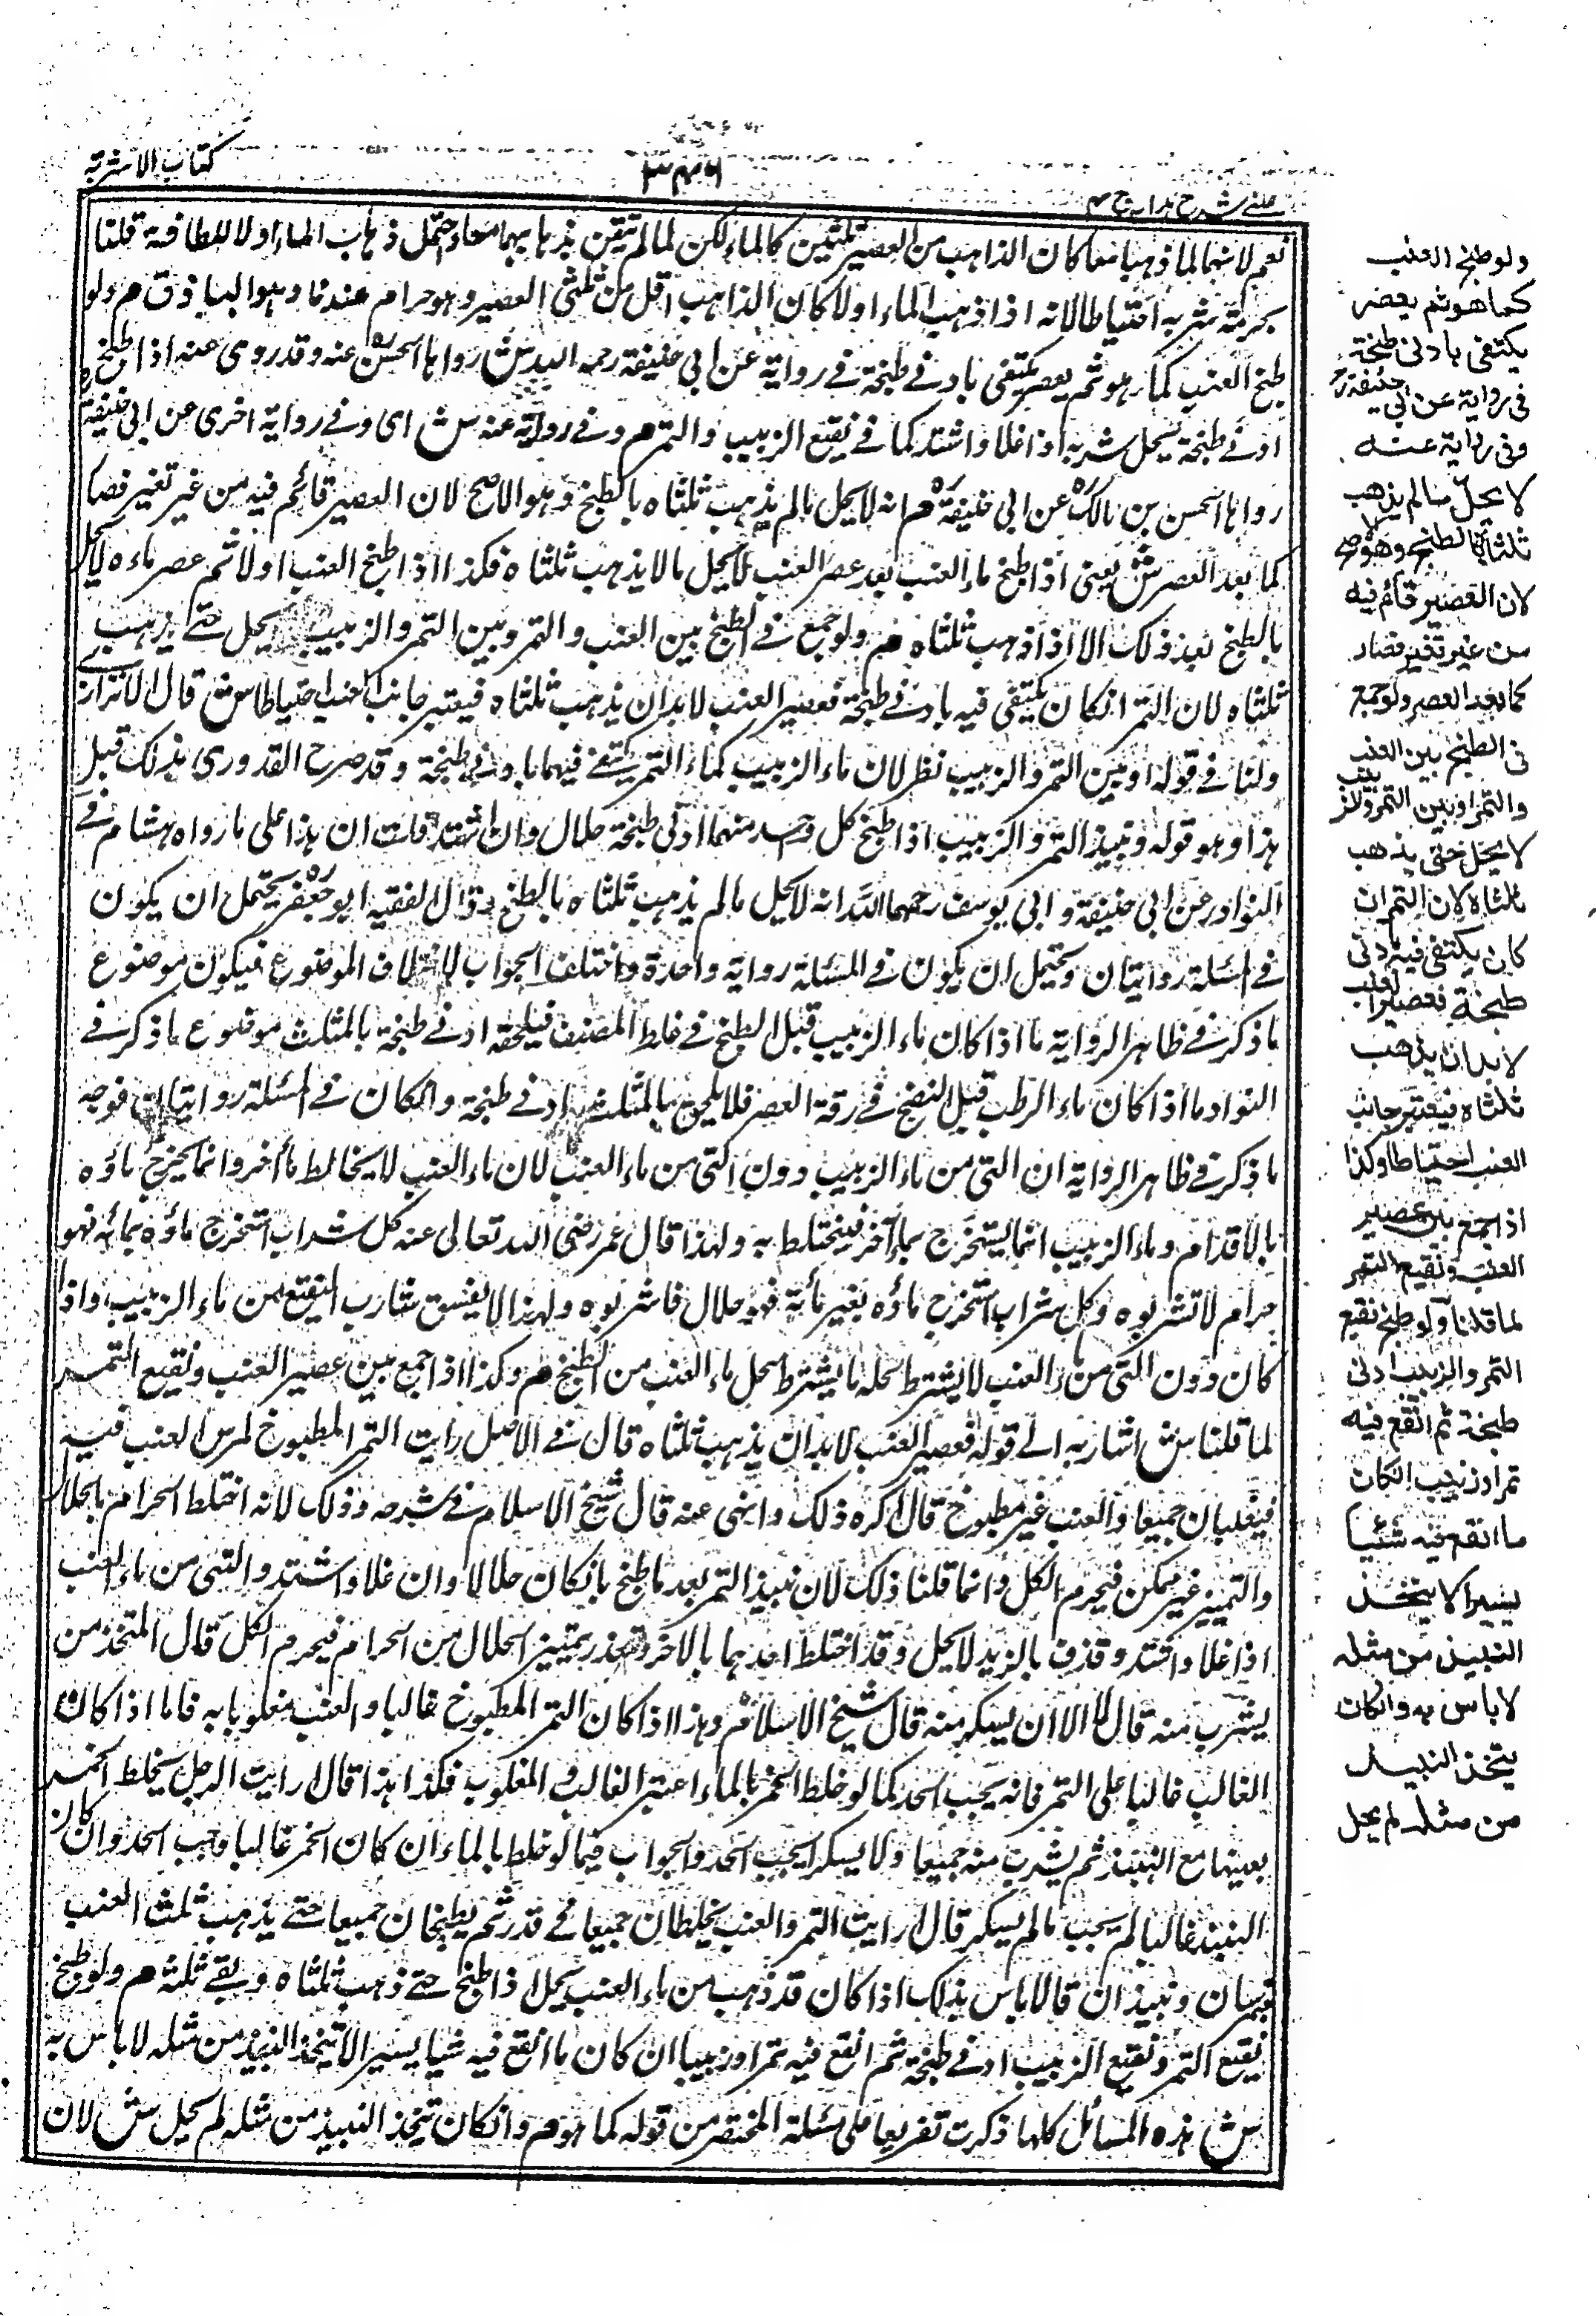 كتاب الاشربة
٣٤٦
عينى شرح هدايه ج ٤
نعم لانهما لما ذهبا معا كان الذاهب من العصير ثلثين كالماء لكن لما لم تيقن بذهابهما معا واحتمل ذهاب الماء اولا للطافته قلنا
بحرمة شربه احتياطا لانه اذا ذهب الماء اولا كان الذاهب اقل من ثلثى العصير وهو حرام عندنا وهو الباذق م ولو
طبخ العنب كما هو ثم يعصر يكتفى بادنى طبخة فى رواية عن ابى حنيفة رحمه الله ش رواها الحسن عنه وقد روى عنه اذا طبخ
ادنى طبخة يحل شربه اذا غلا واشتد كما فى نقيع الزبيب والتمر م وفى رواية عنه ش اى وفى رواية اخرى عن ابى حنيفة
رواها الحسن بن مالك عن ابى حنيفة م انه لا يحل مالم يذهب ثلثاه بالطبخ وهو الاصح لان العصير قائم فيه من غير تغير فصا
كما بعد العصر ش يعنى اذا طبخ ماء العنب بعد عصر العنب لا يحل مالا يذهب ثلثاه فكذا اذا طبخ العنب اولا ثم عصر ماءه لا يحل
بالطبخ بعد ذلك الا اذا ذهب ثلثاه م ولو جمع فى الطبخ بين العنب والتمر وبين التمر والزبيب لا يحل حتى يذهب
ثلثاه لان التمر انكان يكتفى فيه بادنى طبخة فعصير العنب لابد ان يذهب ثلثاه فيعتبر جانب العنب احتياطا ش قال الاترازى
ولنا فى قوله او بين التمر والزبيب نظر لان ماء الزبيب كماء التمر يكتفى فيهما بادنى طبخة وقد صرح القدورى بذلك قبل
هذا وهو قوله ونبيذ التمر والزبيب اذا طبخ كل واحد منهما ادنى طبخة حلال وان اشتد قلت ان هذا على ما رواه هشام فى
النوادر عن ابى حنيفة وابى يوسف رحمهما الله انه لا يحل مالم يذهب ثلثاه بالطبخ وقال الفقيه ابو جعفر يحتمل ان يكون
فى المسئلة روايتان ويحتمل ان يكون فى المسئلة رواية واحدة واختلف الجواب لاختلاف الموضوع فيكون موضوع
ما ذكر فى ظاهر الرواية ما اذا كان ماء الزبيب قبل الطبخ فى غلظ المصنف فيلحقه ادنى طبخة بالمثلث موضوع ما ذكر فى
النوادر ما اذا كان ماء الرطب قبل النضج فى رقة العصر فلا يلحق بالمثلث بادنى طبخة وانكان فى المسئلة روايتان فوجه
ما ذكر فى ظاهر الرواية ان التى من ماء الزبيب دون التى من ماء العنب لان ماء العنب لا يخالط ماء آخر وانما يخرج ماؤه
بالاقدام وماء الزبيب انما يستخرج بماء آخر فيختلط به ولهذا قال عمر رضى الله تعالى عنه كل شراب استخرج ماؤه بمائه فهو
حرام لا تشربوه وكل شراب استخرج ماؤه بغير مائه فهو حلال فاشربوه ولهذا لا يفسق شارب النقيع من ماء الزبيب واذا
كان دون التى من ماء العنب لا يشترط لحله ما يشترط لحل ماء العنب من الطبخ م وكذا اذا جمع بين عصير العنب ونقيع التمر
لما قلنا ش اشار به الى قوله فعصير العنب لابد ان يذهب ثلثاه قال فى الاصل رايت التمر المطبوخ لمرس العنب فيه
فيغليان جميعا والعنب غير مطبوخ قال اكره ذلك وانهى عنه قال شيخ الاسلام فى شرحه وذلك لانه اختلط الحرام بالحلال
والتمييز غير ممكن فيحرم الكل وانما قلنا ذلك لان نبيذ التمر بعد ما طبخ بانكان حلالا وان غلا واشتد والتى من ماء العنب
اذا غلا واشتد وقذف بالزبد لا يحل وقد اختلط احدهما بالاخر وتعذر تمييز الحلال من الحرام فيحرم الكل قال المتخذ من
يشرب منه قال لا الا ان يسكر منه قال شيخ الاسلام وهذا اذا كان التمر المطبوخ غالبا والعنب مغلوبا به فاما اذا كان
الغالب غالبا على التمر فانه يجب الحد كما لو خلط الخمر بالماء اعتبر الغالب والمغلوب فكذا هذا قال ارايت الرجل يخلط الخمر
بعينها مع النبيذ ثم يشرب منه جميعا ولا يسكر ايجب الحد والجواب فيما لو خلط بالماء ان كان الخمر غالبا وجب الحد وان كان
النبيذ غالبا لم يجب مالم يسكر قال ارايت التمر والعنب يخلطان جميعا فى قدر ثم يطبخان جميعا حتى يذهب ثلث العنب
ونبيذ ان قال لا باس بذلك اذا كان قد ذهب من ماء العنب يحل اذا طبخ حتى ذهب ثلثاه وبقى ثلثه م ولو طبخ
نقيع التمر ونقيع الزبيب ادنى طبخة ثم انقع فيه تمر او زبيب ان كان ما انقع فيه شيا يسيرا لا يتخذ النبيذ من مثله لا باس به
ش هذه المسائل كلها ذكرت تفريعا على مسئلة المختصر من قوله كما هو م وانكان يتخذ النبيذ من مثله لم يحل ش لان
ولو طبخ العنب
كما هو ثم يعصر
يكتفى بادنى طبخة
فى رواية عن ابى حنيفة رح
وفى رواية عنه
لا يحل ما لم يذهب
ثلثاه بالطبخ وهو الاصح
لان العصير قائم فيه
من غير تغير فصار
كما بعد العصر ولو جمع
فى الطبخ بين العنب
والتمر او بين التمر والزبيب
لا يحل حتى يذهب
ثلثاه لان التمر ان
كان يكتفى فيه بادنى
طبخة فعصير العنب
لابد ان يذهب
ثلثاه فيعتبر جانب
العنب احتياطا وكذا
اذا جمع بين عصير
العنب ونقيع التمر
لما قلنا ولو طبخ نقيع
التمر والزبيب ادنى
طبخة ثم انقع فيه
تمر او زبيب ان كان
ما انقع فيه شيئا
يسيرا لا يتخذ
النبيذ من مثله
لا باس به وانكان
يتخذ النبيذ
من مثله لم يحل